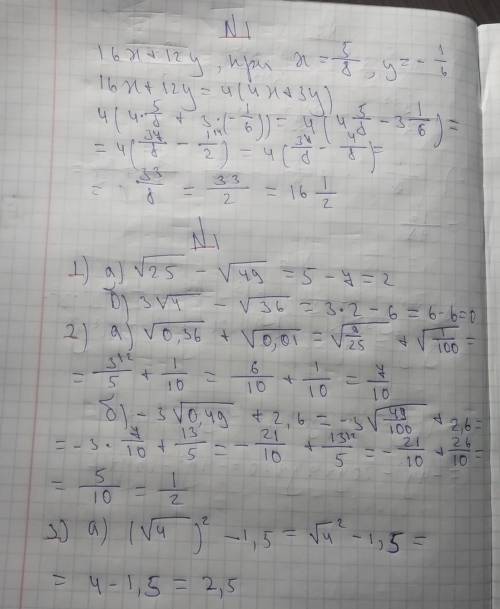 N1
16x+12y, при x=5/8, y=-1/6
16x+12y=4(4x+3y)
4(4·5/8+3·(-1/6))=4(4 5/8-3 1/6)=
=4(37/8-1/2)=4(37/8-4/8)=
=33/8=33/2=16 1/2
N1
1) а) √25-√49=5-7=2
б) 3√4-√36=3·2-6=6-6=0
2) а) √0,36+√0,01=√9/25+√1/100=
=3/5+1/10=6/10+1/10=7/10
б) -3√0,49+2,6=-3√49/100+2,6=
=-3·7/10+13/5=-21/10+13/5=-21/10+26/10=
=5/10=1/2
3) а) (√4)²-1,5=√4²-1,5=
=4-1,5=2,5